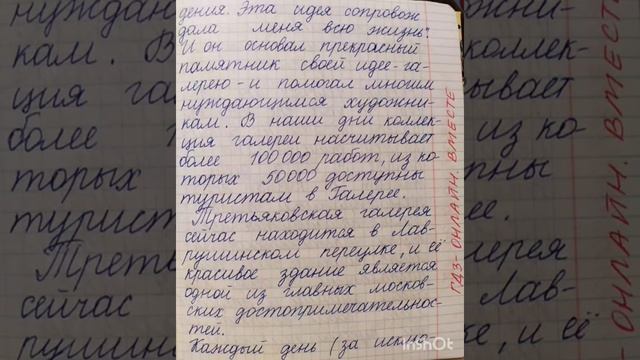 дения. Эта идея сопровож
дала меня всю жизнь".
И он основал прекрасный
памятник своей идее - га-
лерею - и помогал многим
нуждающимся художни-
кам. В наши дни коллек-
ция галереи насчитывает
более 100 000 работ, из ко
торых 50000 доступны
туристам в Галерее.
Третьяковская галерея
сейчас находится в Лав-
рушинском переулке, и её
красивое здание является
одной из главных москов-
ских достопримечательнос-
тей.
Каждый день (за исклю-
ГДЗ-ОНЛАЙН. ВМЕСТЕ
InShOt